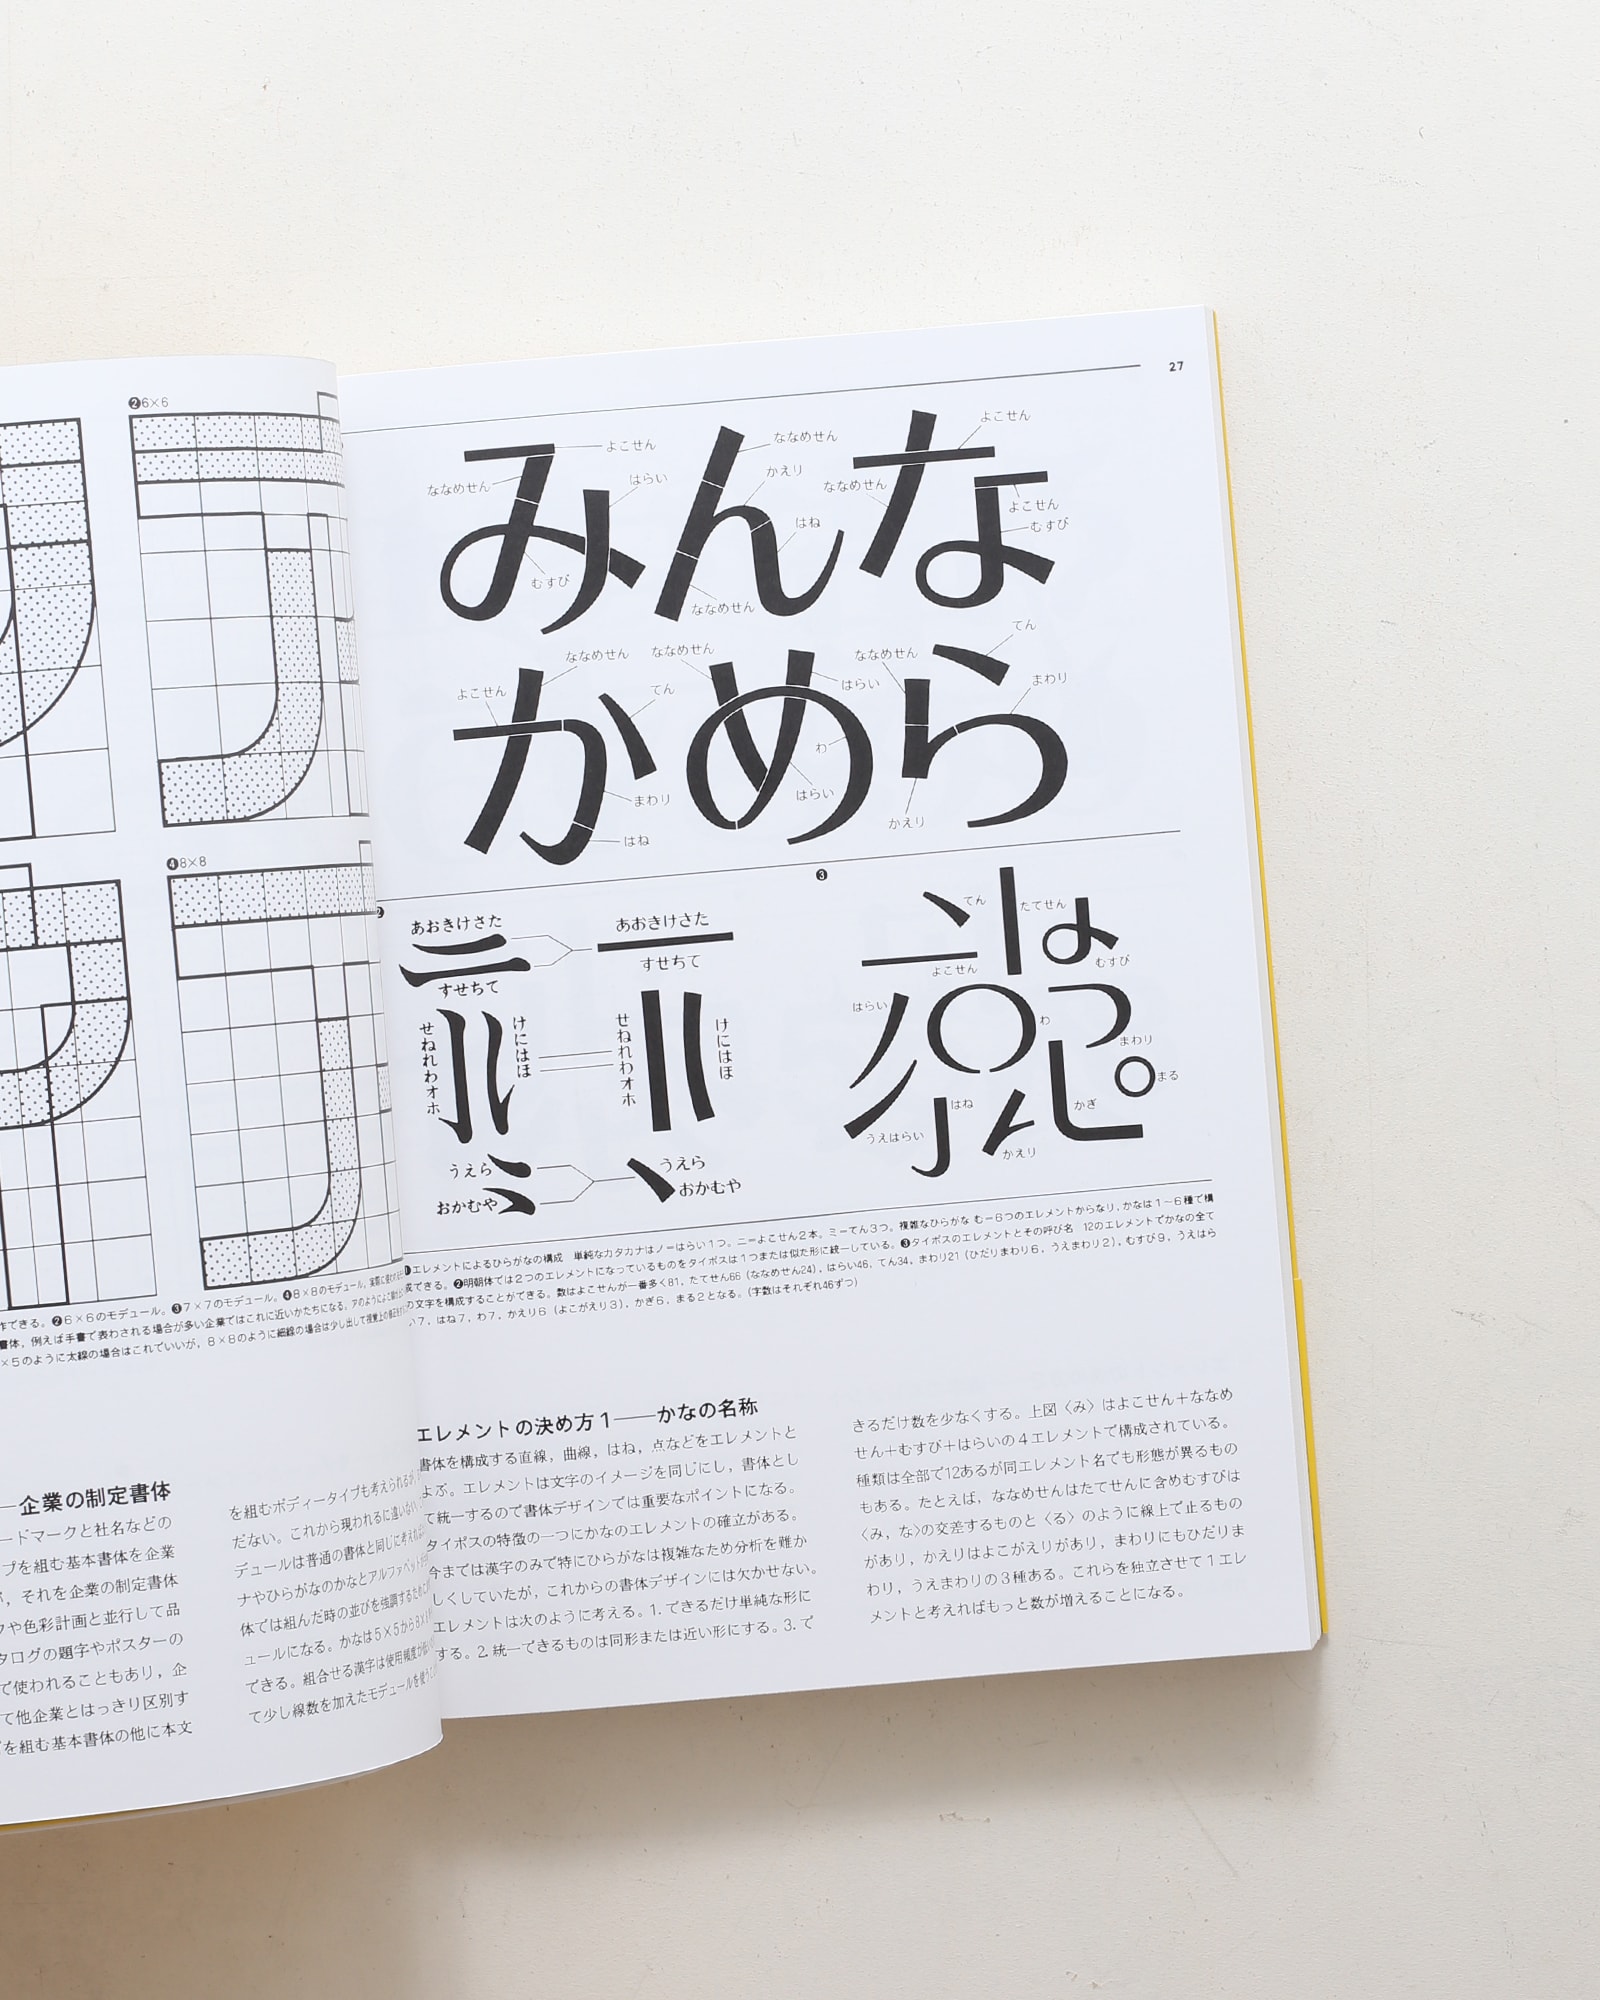 ❷6×6
❹8×8
作できる。❷6×6のモデュール。❸7×7のモデュール。❹8×8のモデュール。
書体，例えば手書で表わされる場合が多い企業ではこれに近いかたちになる。
×5のように太線の場合はこれでいいが，8×8のように細線の場合は少し出して
——企業の制定書体
ードマークと社名などの
プを組む基本書体を企業
，それを企業の制定書体
クや色彩計画と並行して品
タログの題字やポスターの
で使われることもあり，企
て他企業とはっきり区別す
を組む基本書体の他に本文
を組むボディータイプも考えられるが
だない。これから現われるに違いない
デュールは普通の書体と同じに考え
ナやひらがなのかなとアルファベット
体では組んだ時の並びを強調するため
ュールになる。かなは5×5から8×
できる。組合せる漢字は使用頻度が
て少し線数を加えたモデュールを使う
27
みんな
よこせん
ななめせん
はらい
むすび
ななめせん
かえり
はね
ななめせん
よこせん
ななめせん
よこせん
むすび
かめら
よこせん
ななめせん
てん
まわり
はね
ななめせん
はらい
わ
はらい
ななめせん
てん
まわり
かえり
❷
あおきけさた
すせちて
あおきけさた
すせちて
せねれわオホ
けにはほ
せねれわオホ
けにはほ
うえら
おかむや
うえら
おかむや
❸
てん
たてせん
むすび
よこせん
はらい
わ
まわり
まる
うえはらい
はね
かえり
かぎ
❶エレメントによるひらがなの構成　単純なカタカナはノ＝はらい1つ。ニ＝よこせん2本。ミ＝てん3つ。複雑なひらがな む＝6つのエレメントからなり，かなは1～6種で構
成できる。❷明朝体では2つのエレメントになっているものをタイポスは1つまたは似た形に統一している。❸タイポスのエレメントとその呼び名　12のエレメントでかなの全て
の文字を構成することができる。数はよこせんが一番多く81，たてせん66（ななめせん24），はらい46，てん34，まわり21（ひだりまわり6，うえまわり2），むすび9，うえはら
い7，はね7，わ7，かえり6（よこがえり3），かぎ6，まる2となる。(字数はそれぞれ46ずつ)
エレメントの決め方1——かなの名称
書体を構成する直線，曲線，はね，点などをエレメントと
よぶ。エレメントは文字のイメージを同じにし，書体とし
て統一するので書体デザインでは重要なポイントになる。
タイポスの特徴の一つにかなのエレメントの確立がある。
今までは漢字のみで特にひらがなは複雑なため分析を難か
しくしていたが，これからの書体デザインには欠かせない。
エレメントは次のように考える。1. できるだけ単純な形に
する。2. 統一できるものは同形または近い形にする。3. で
きるだけ数を少なくする。上図〈み〉はよこせん＋ななめ
せん＋むすび＋はらいの4エレメントで構成されている。
種類は全部で12あるが同エレメント名でも形態が異るもの
もある。たとえば，ななめせんはたてせんに含めむすびは
〈み，な〉の交差するものと〈る〉のように線上で止るもの
があり，かえりはよこがえりがあり，まわりにもひだりま
わり，うえまわりの3種ある。これらを独立させて1エレ
メントと考えればもっと数が増えることになる。